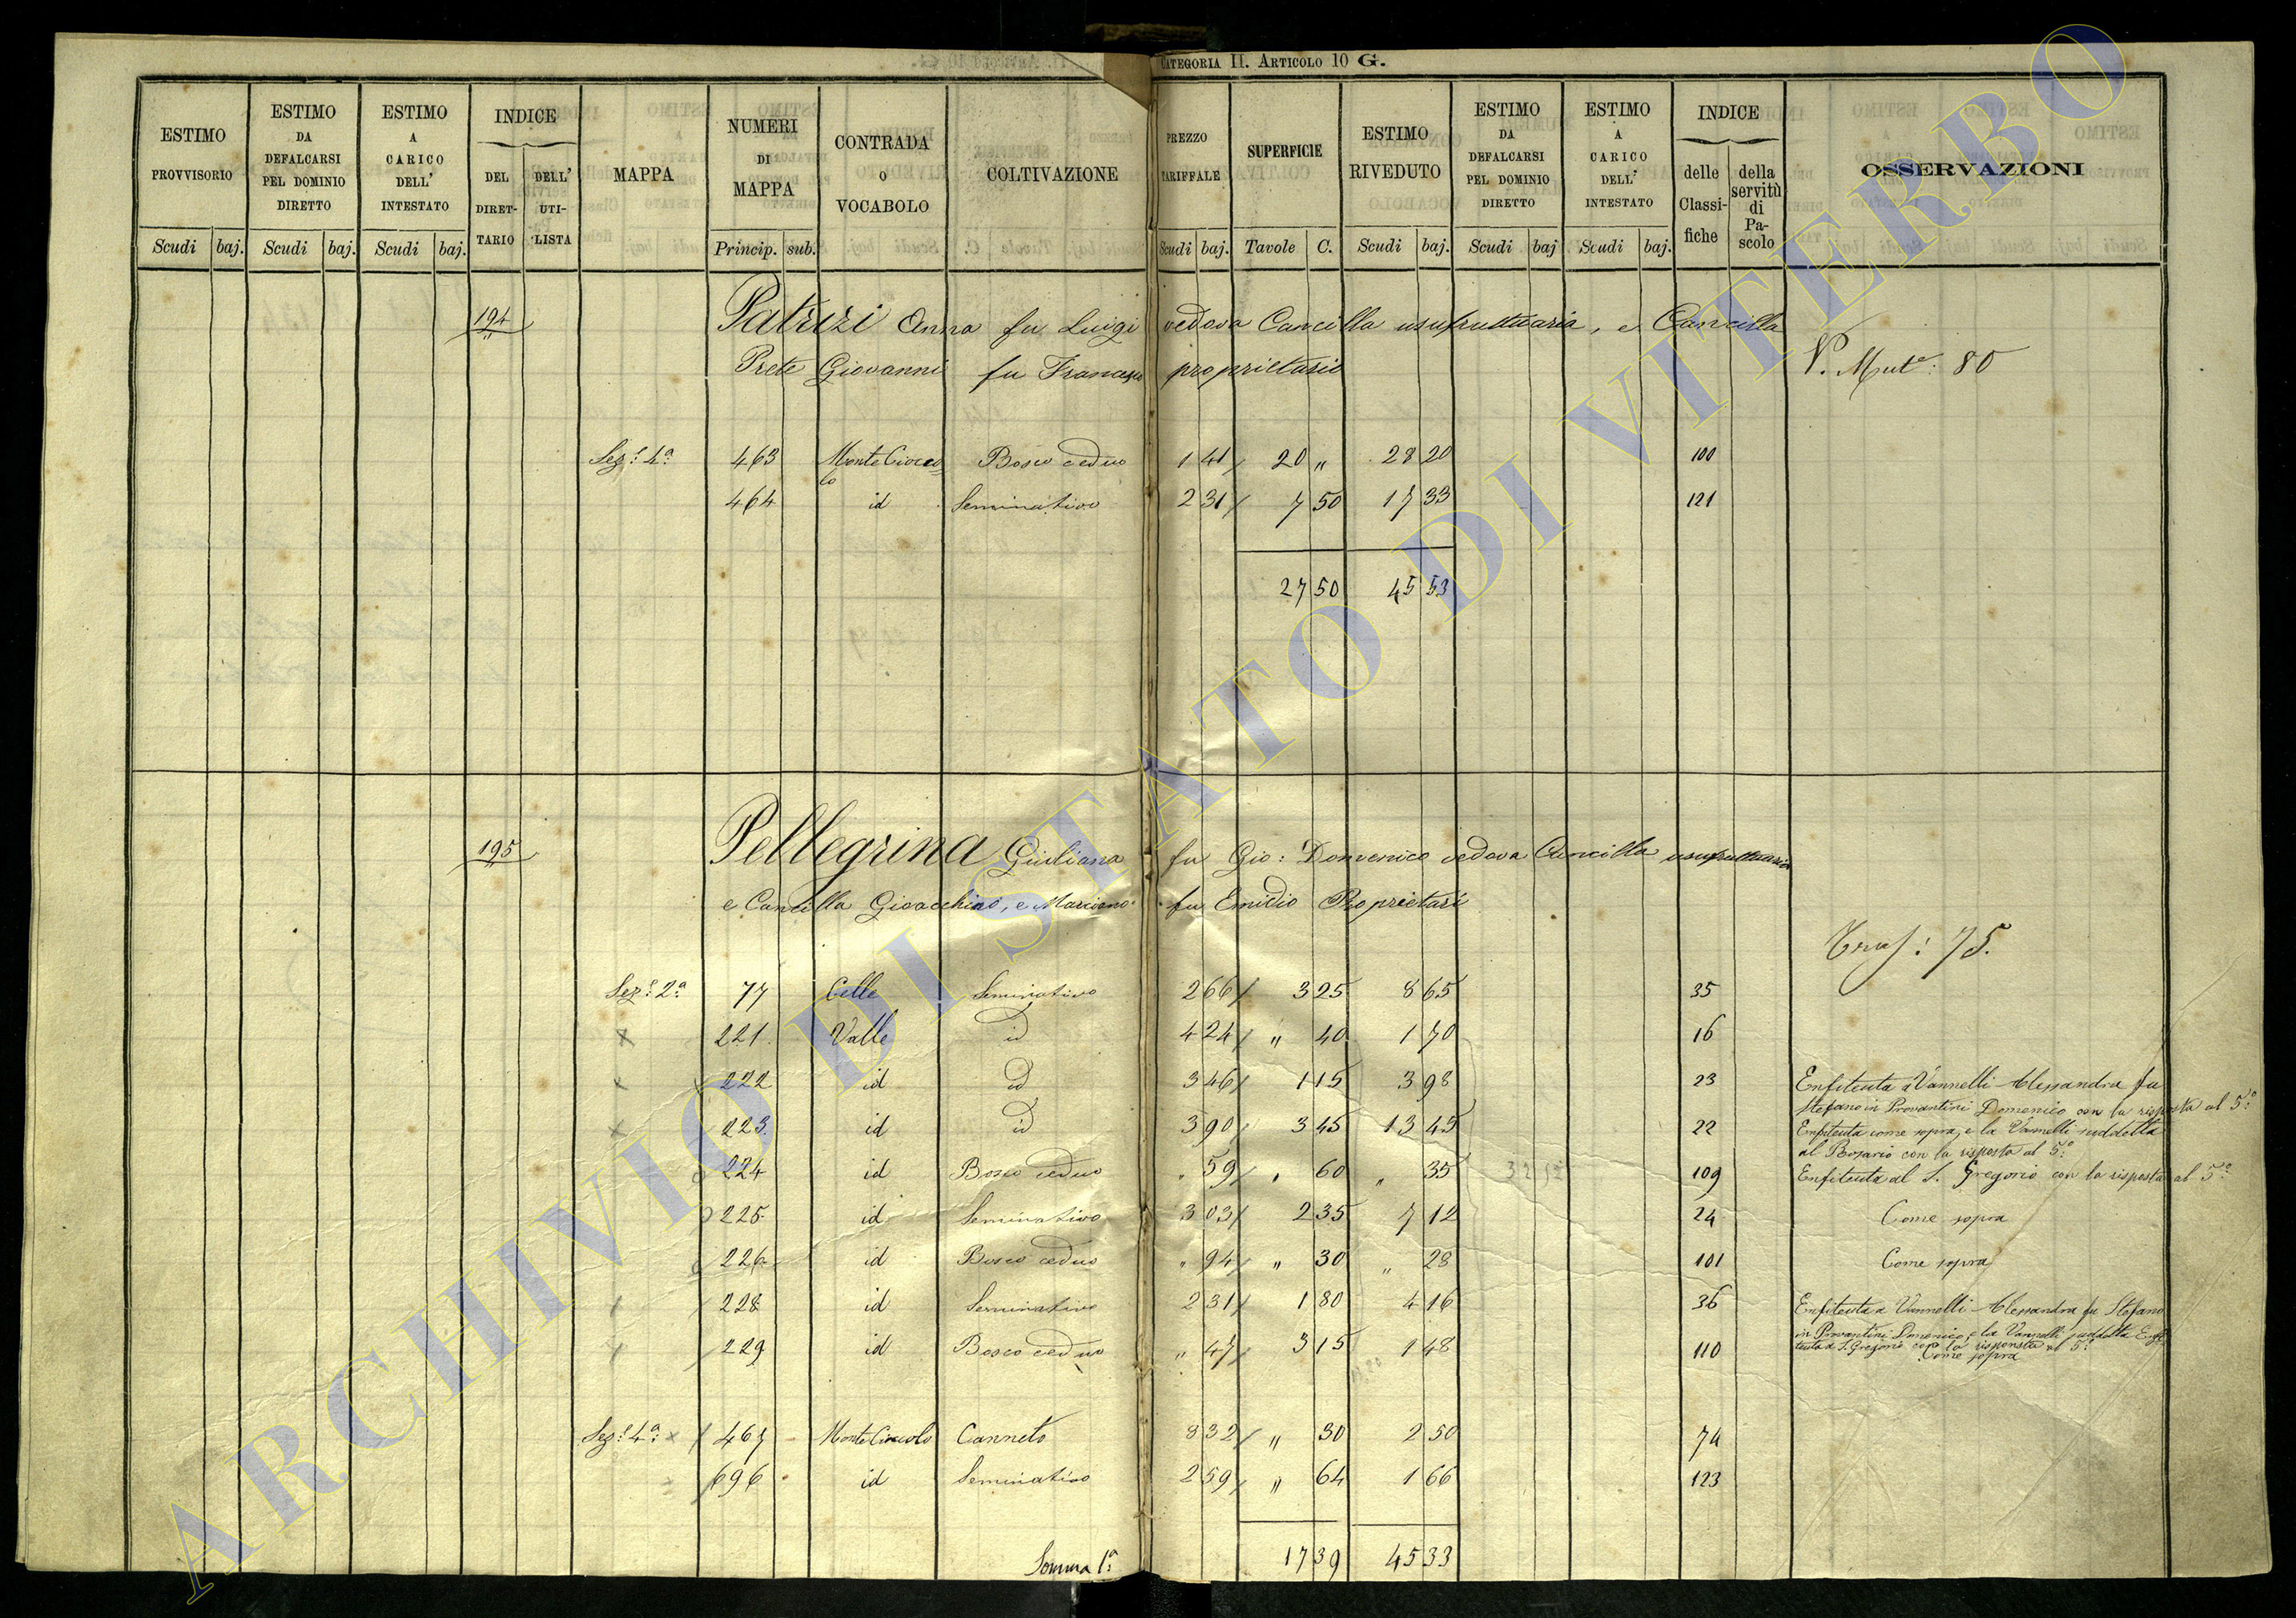 CATEGORIA II. ARTICOLO 10 G.
ESTIMO PROVVISORIO Scudi baj.
ESTIMO DA DEFALCARSI PEL DOMINIO DIRETTO Scudi baj.
ESTIMO A CARICO DELL' INTESTATO Scudi baj.
INDICE DEL DIRETTARIO DELL' UTILISTA
MAPPA
NUMERI DI MAPPA Princip. sub.
CONTRADA O VOCABOLO
COLTIVAZIONE
PREZZO TARIFFALE Scudi baj.
SUPERFICIE Tavole C.
ESTIMO RIVEDUTO Scudi baj.
ESTIMO DA DEFALCARSI PEL DOMINIO DIRETTO Scudi baj
ESTIMO A CARICO DELL' INTESTATO Scudi baj.
INDICE delle Classifiche della servitù di Pascolo
OSSERVAZIONI
194 Patrizi Anna fu Luigi vedova Cancilla usufruttuaria, e Cancilla
Prete Giovanni fu Francesco proprietario V. Mut.e: 80
Sez.e 4a 463 Monte Cioccolo Bosco ceduo 1 41 20 " 28 20 100
464 id Seminativo 2 31 7 50 17 33 121
27 50 45 53
195 Pellegrina Giuliana fu Gio: Domenico vedova Cancilla usufruttuaria
e Cancilla Gioacchino, e Marciano fu Emidio Proprietari
Tras: 75.
Sez.e 2a 77 Celle Seminativo 2 66 3 25 8 65 35
x 221 Valle id 4 24 " 40 1 70 16
x 222 id id 3 46 1 15 3 98 23 Enfiteuta a Vannelli Alessandra fu
Stefano in Provantini Domenico con la risposta al 5°
x 223 id id 3 90 3 45 13 45 22 Enfiteuta come sopra, e la Vannelli suddetta
al Rosario con la risposta al 5°
224 id Bosco ceduo " 59 " 60 " 35 109 Enfiteuta al S. Gregorio con la risposta al 5°
225 id Seminativo 3 03 2 35 7 12 24 Come sopra
226 id Bosco ceduo " 94 " 30 " 28 101 Come sopra
228 id Seminativo 2 31 1 80 4 16 36 Enfiteuta a Vannelli Alessandra fu Stefano
in Provantini Domenico, e la Vannelli suddetta Enfi
teuta a S. Gregorio con la risposta al 5°
229 id Bosco ceduo " 47 3 15 1 48 110 Come sopra
Sez.e 4a x 467 Monte Cioccolo Canneto 8 32 " 30 2 50 74
696 id Seminativo 2 59 " 64 1 66 123
Somma 1a 17 39 45 33
ARCHIVIO DI STATO DI VITERBO